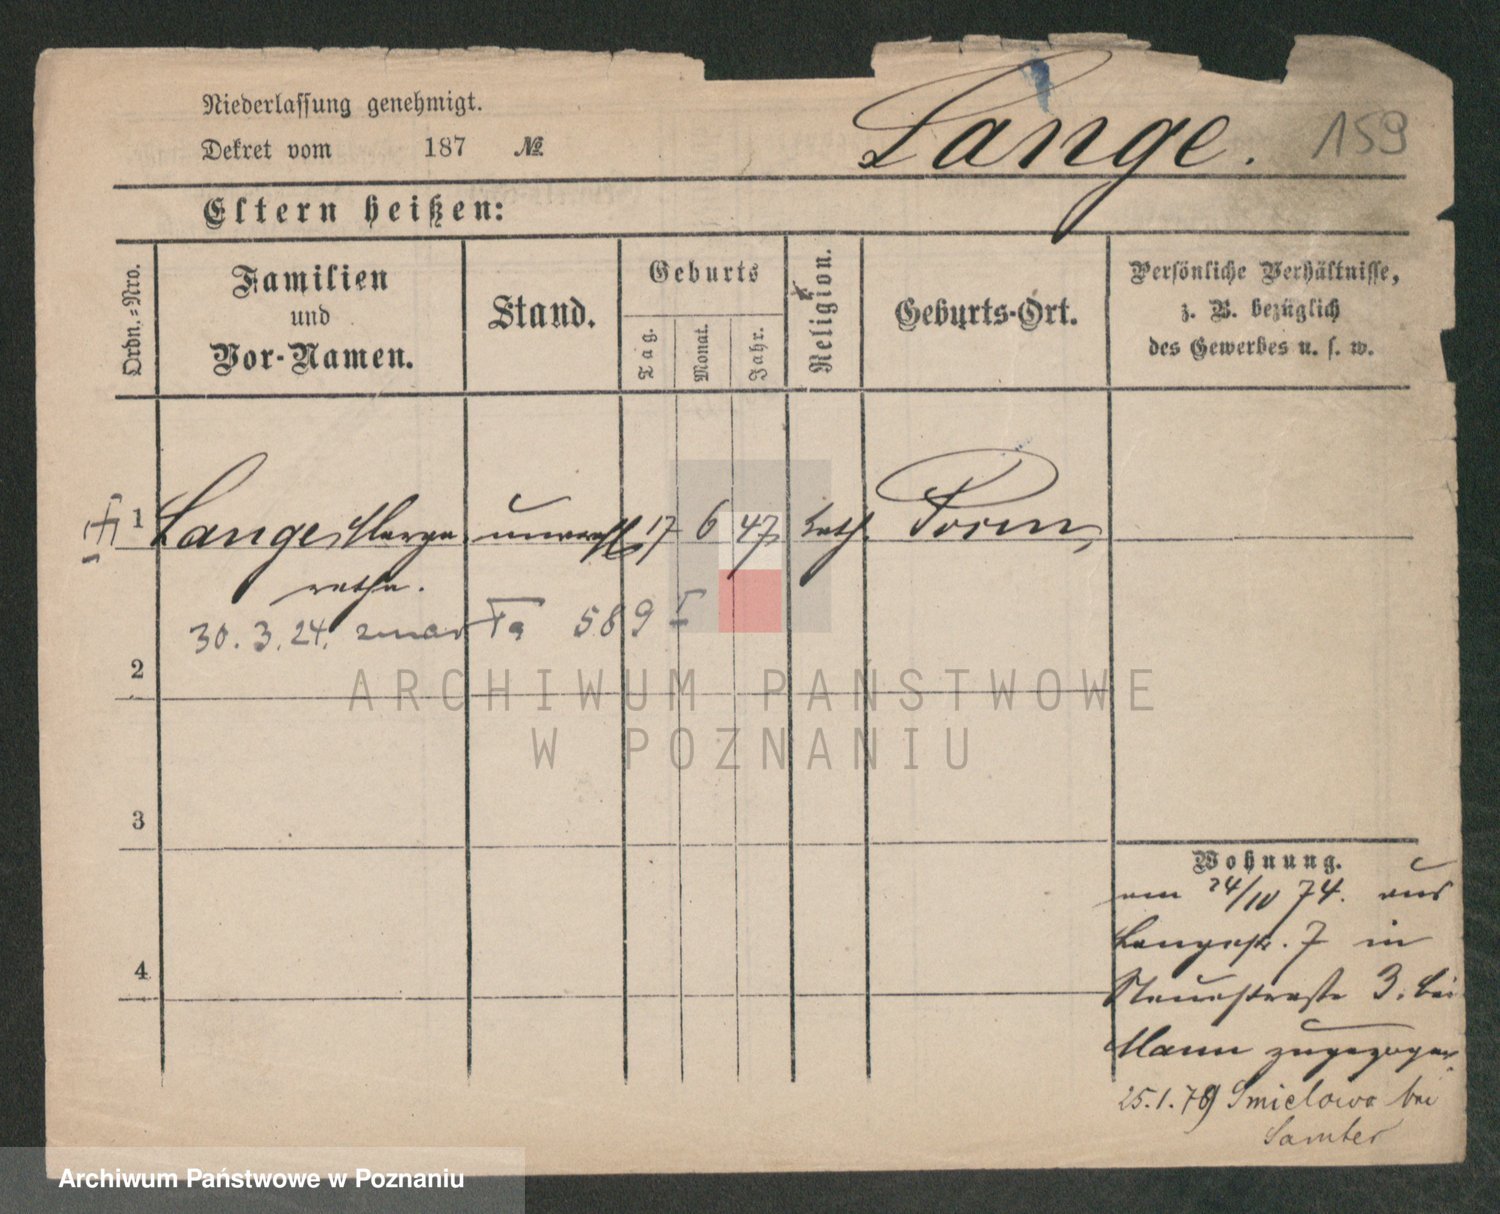 Niederlassung genehmigt.
Dekret vom 187 №
Lange. 159
Eltern heißen:
Ordn.-Nro.
Familien
und
Vor-Namen.
Stand.
Geburts
Tag.
Monat.
Jahr.
Religion.
Geburts-Ort.
Persönliche Verhältnisse,
z. B. bezüglich
des Gewerbes u. s. w.
1 Lange, Marga- unverehl. 17 6 47 kath. Posen
retha.
30. 3. 24. 589 I
2
ARCHIWUM PAŃSTWOWE
W POZNANIU
3
4
Wohnung.
am 24/10 74. aus
Langestr. 7 in
3. bei
Mann zugezogen.
25.1.76 Smielowo bei
Samter
Archiwum Państwowe w Poznaniu